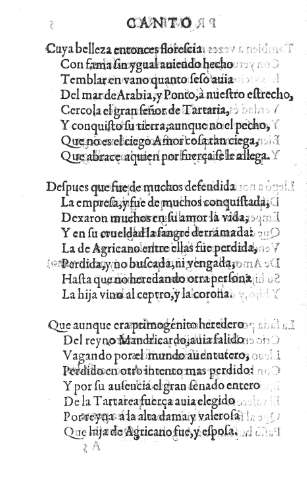 CANTO
Cuya belleza entonces florescia
Con fama sin ygual auiendo hecho
Temblar en vano quanto se so auia
Del mar de Arabia, y Ponto, à nuestro estrecho,
Cercola el gran señor de Tartaria,
Y conquisto su tierra, aunque no el pecho,
Que no es el ciego Amor cosa tan ciega,
Que abrace aquien por fuerça se le allega.
Despues que fue de muchos defendida
La empresa, y fue de muchos conquistada,
Dexaron muchos en su amor la vida,
Y en su crueldad la sangre derramada:
La de Agricano entre ellas fue perdida,
Perdida, y no buscada, ni vengada,
Hasta que no heredando otra persona
La hija vino al ceptro, y la corona.
Que aunque era primogénito heredero
Del reyno Mandricardo, auia salido
Vagando por el mundo auenturero,
Perdido en otro intento mas perdido:
Y por su ausencia el gran senado entero
De la Tartarea fuerça auia elegido
Por reyna à la alta dama y valerosa
Que hija de Agricano fue, y esposa.